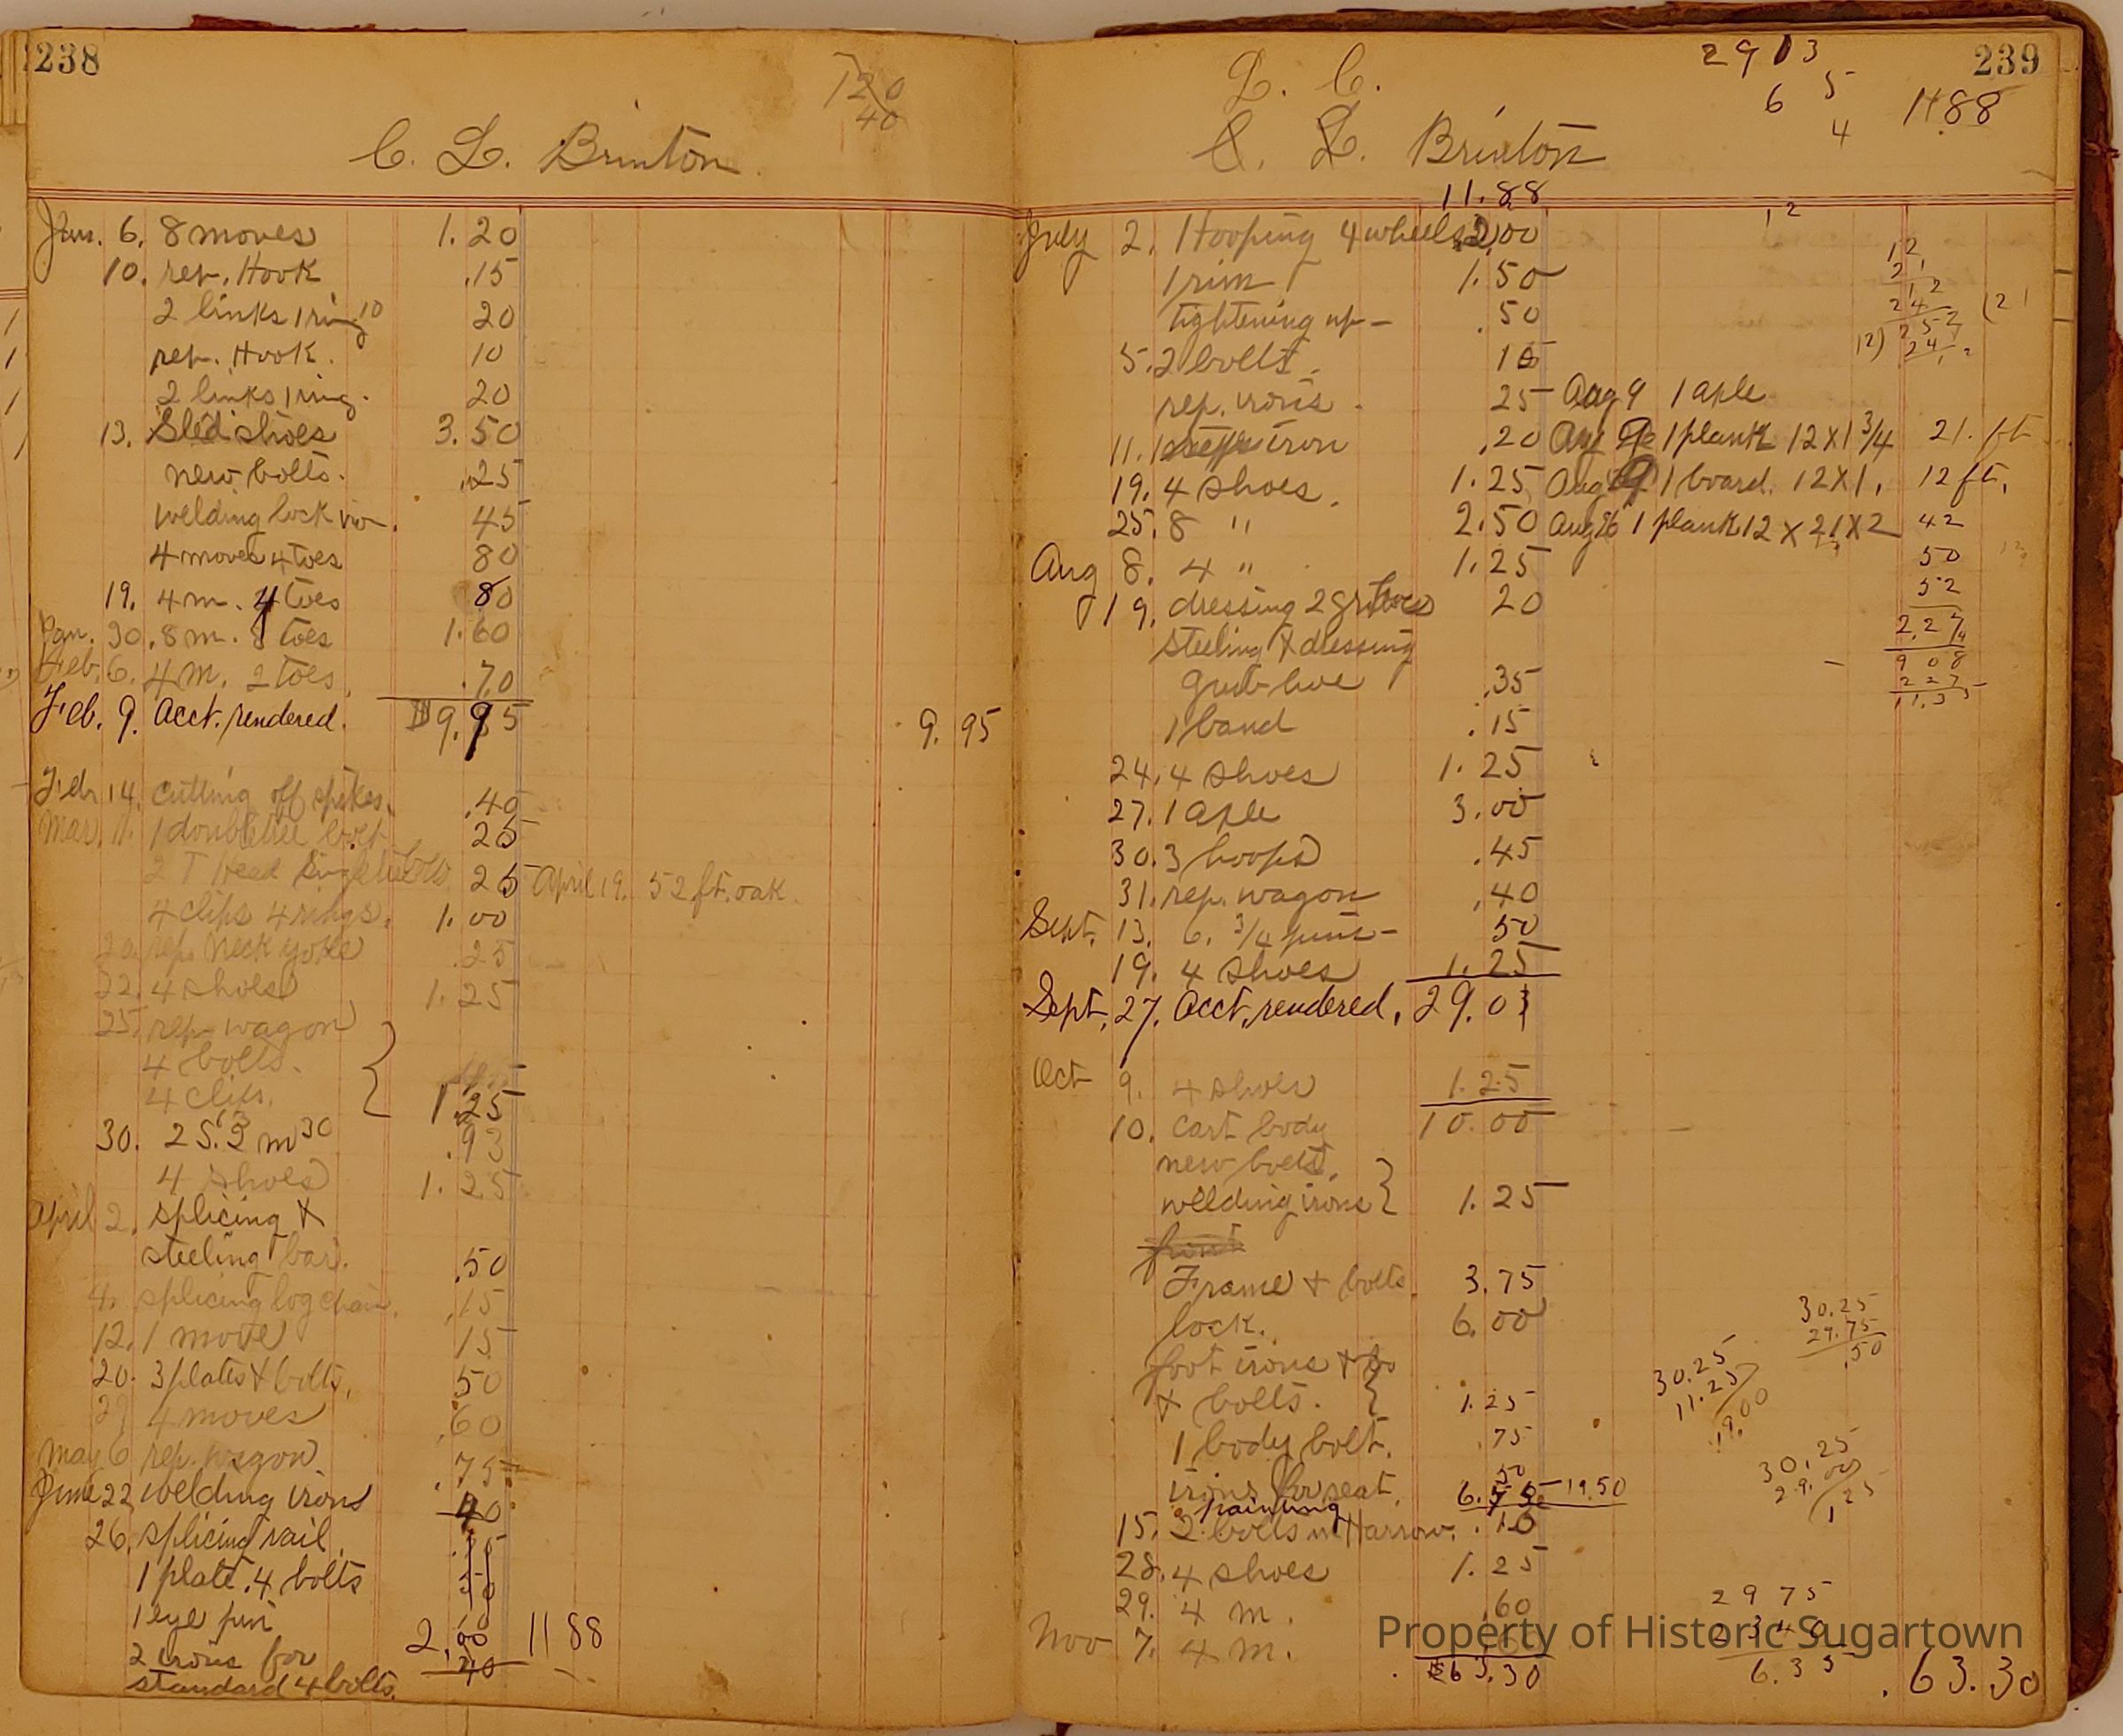 238
120
40
C. L. Brinton
Jan. 6. 8 moves 1.20
10. rep. Hook .15
2 links 1 ring 10 20
rep. Hook. 10
2 links 1 ring. 20
13. Sled shoes 3.50
new bolts. .25
welding lock 45
4 moves 4 toes 80
19. 4 m. 4 toes 80
Jan. 30. 8 m. 8 toes 1.60
Feb. 6. 4 m. 2 toes .70
Feb. 9. Acct. rendered. 9.95 9.95
Feb 14. Cutting off spikes. .40
Mar. 11. 1 doubletree bolt 25
2 T Head Singletree 25 April 19. 52 ft. oak.
4 clips 4 rings. 1.00
20. rep. Neck yoke .25
22. 4 shoes 1.25
25. rep. wagon
4 bolts.
4 clips. 1.25
30. .93
4 shoes 1.25
April 2. splicing &
steeling bar. .50
4. splicing log chain. .15
12. 1 move 15
20. 3 plates & bolts. 50
4 moves .60
May 6 rep. wagon .75
June 22 welding irons 40
26. splicing rail
1 plate. 4 bolts 50
1 eye pin 10
2 irons for 2.00 11 88
standard 4 bolts. 40
239
L. C.
2913
5
6
4
1188
C. L. Brinton
11.88
July 2. Hooping 4 wheels 2.00
1 rim 1.50
tightening up .50
5. 2 bolts. 10
rep. irons. 25 Aug 9 1 axle
11. 1 iron .20 Aug 9 1 plank 12 x 1 3/4 21. ft
19. 4 shoes. 1.25 Aug 9 1 board. 12 x 1. 12 ft.
25. 8 " 2.50 Aug 26 1 plank 12 x 21 x 2 42
Aug 8. 4 " 1.25 50
19. dressing 2 20 52
steeling & dressing 2.27
grub hoe .35 908
227
1 band .15 11.35
24. 4 shoes 1.25
27. 1 axle 3.00
30. 3 hoops .45
31. rep. wagon .40
Sept. 13. 6. 3/4 pins 50
19. 4 shoes 1.25
Sept. 27. Acct. rendered. 29.03
Oct 9. 4 shoes 1.25
10. Cart body 10.00
new bolts.
welding irons 1.25
Frame & bolts 3.75
lock. 6.00
foot irons &
& bolts. 1.25
1 body bolt. .75
irons for seat. 50
painting 6. 19.50
15. 2 bolts in Harrow. .10
28. 4 shoes 1.25
29. 4 m. .60
Nov 7. 4 m. .60
63.30
30.25
29.75
.50
30.25
11.25
19.00
30.25
29.00
1 25
2975
6.35
63.30
Property of Historic Sugartown